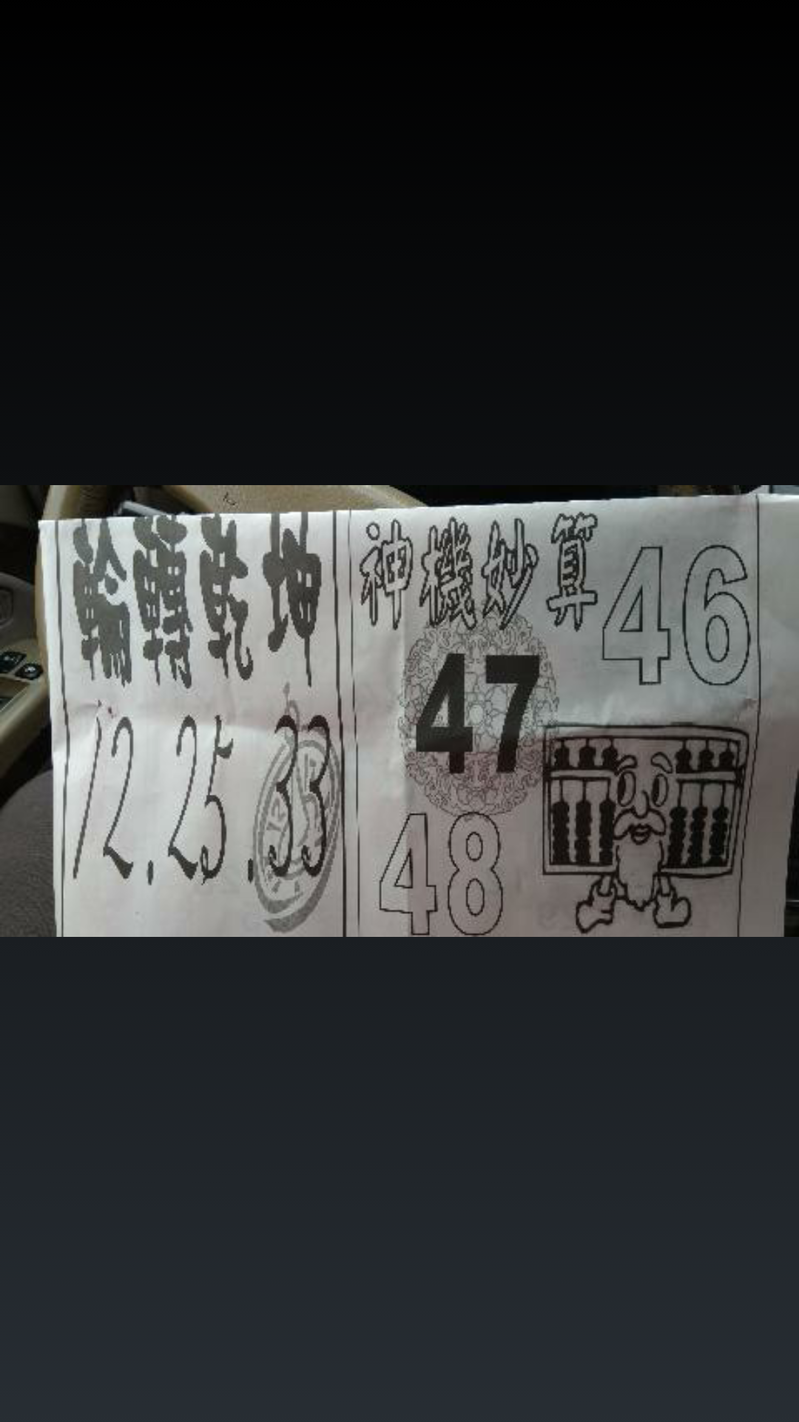 輪轉乾坤
12.25.33
神機妙算
46
47
48